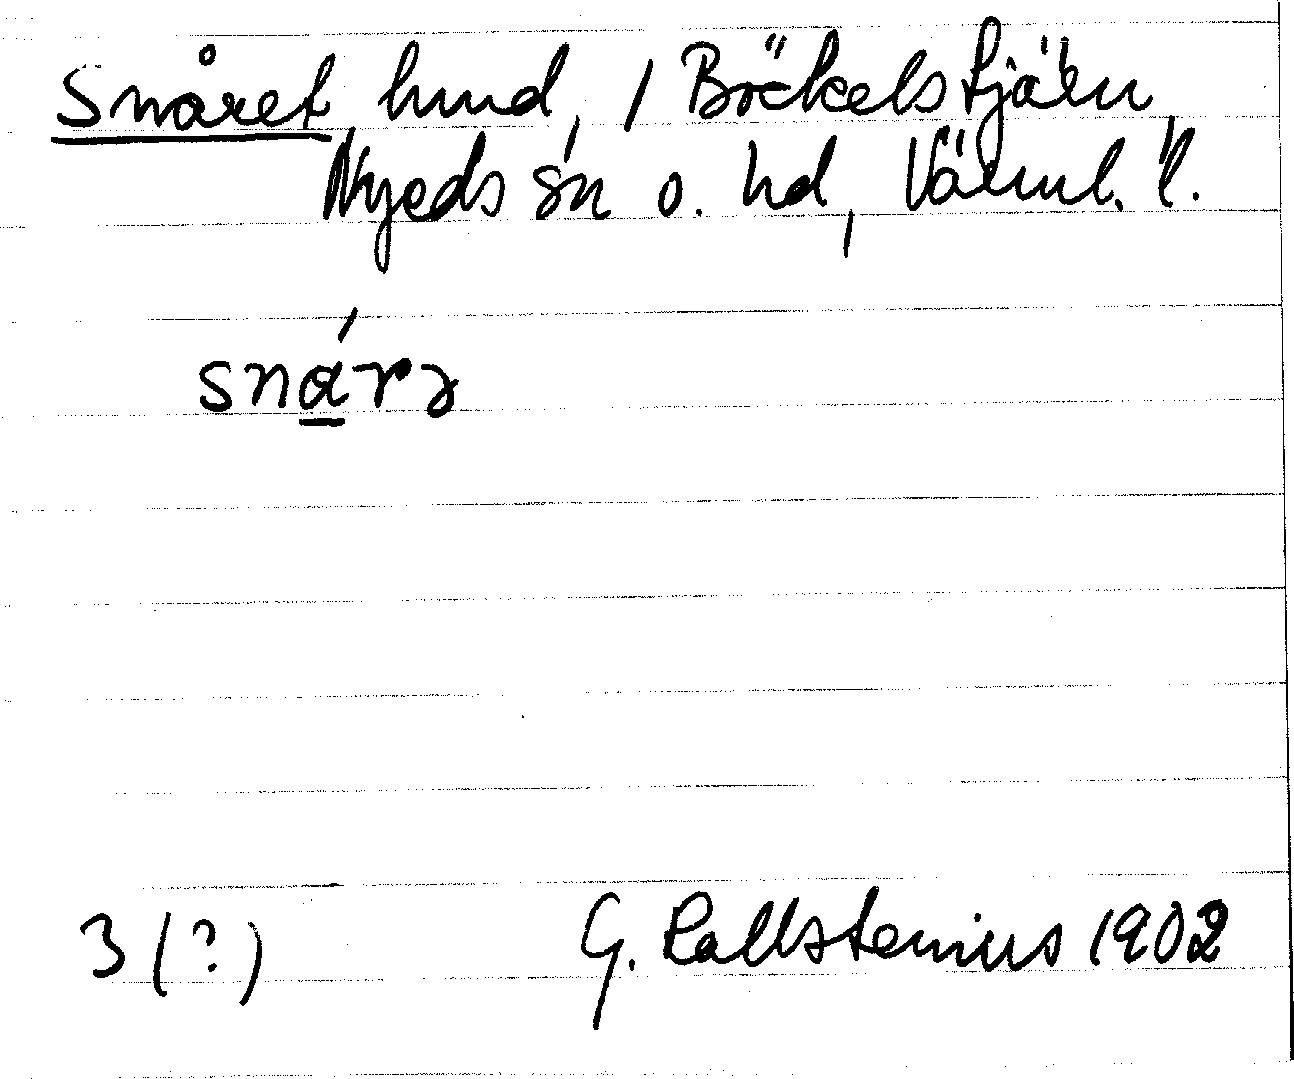 Snåret, hund, i Böckelstjärn,
Nyeds sn o. hd, Värml. l.
snárə
3 (?) G. Kallstenius 1902